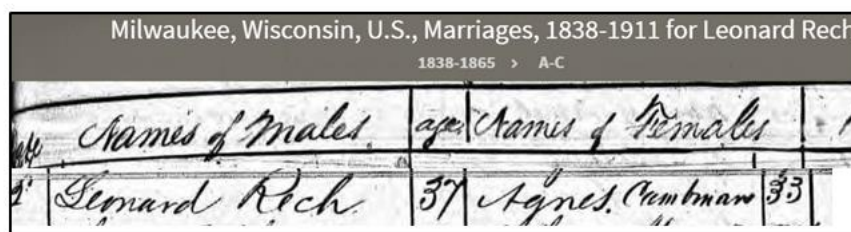 Milwaukee, Wisconsin, U.S., Marriages, 1838-1911 for Leonard Rech
1838-1865 > A-C
Names of Males age Names of Females
Leonard Rech 37 Agnes. Cumbman 33